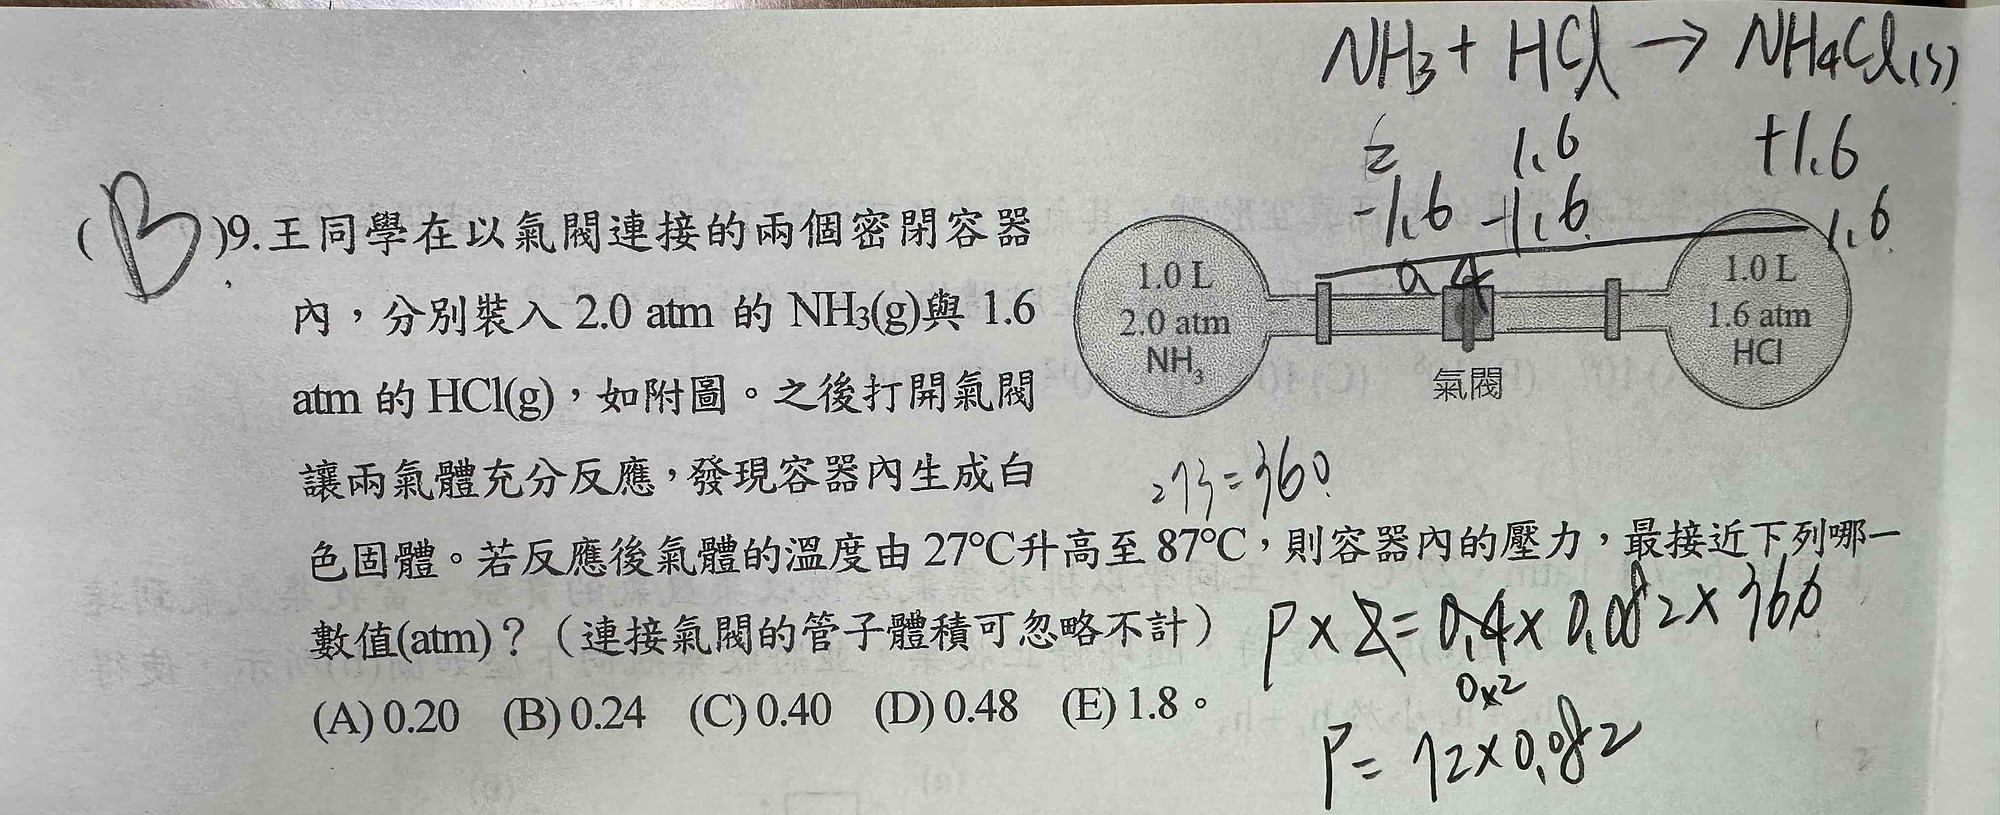 NH3 + HCl → NH4Cl(s)
2 1.6 +1.6
-1.6 -1.6 1.6
0.4
(B)9.王同學在以氣閥連接的兩個密閉容器
內,分別裝入 2.0 atm 的 NH3(g)與 1.6
atm 的 HCl(g),如附圖。之後打開氣閥
讓兩氣體充分反應,發現容器內生成白
色固體。若反應後氣體的溫度由 27℃升高至 87℃,則容器內的壓力,最接近下列哪一
數值(atm)?(連接氣閥的管子體積可忽略不計)
(A) 0.20 (B) 0.24 (C) 0.40 (D) 0.48 (E) 1.8。
1.0 L
2.0 atm
NH3
氣閥
1.0 L
1.6 atm
HCl
273=360
P×2=0.4×0.082×360
0×2
P=72×0.082